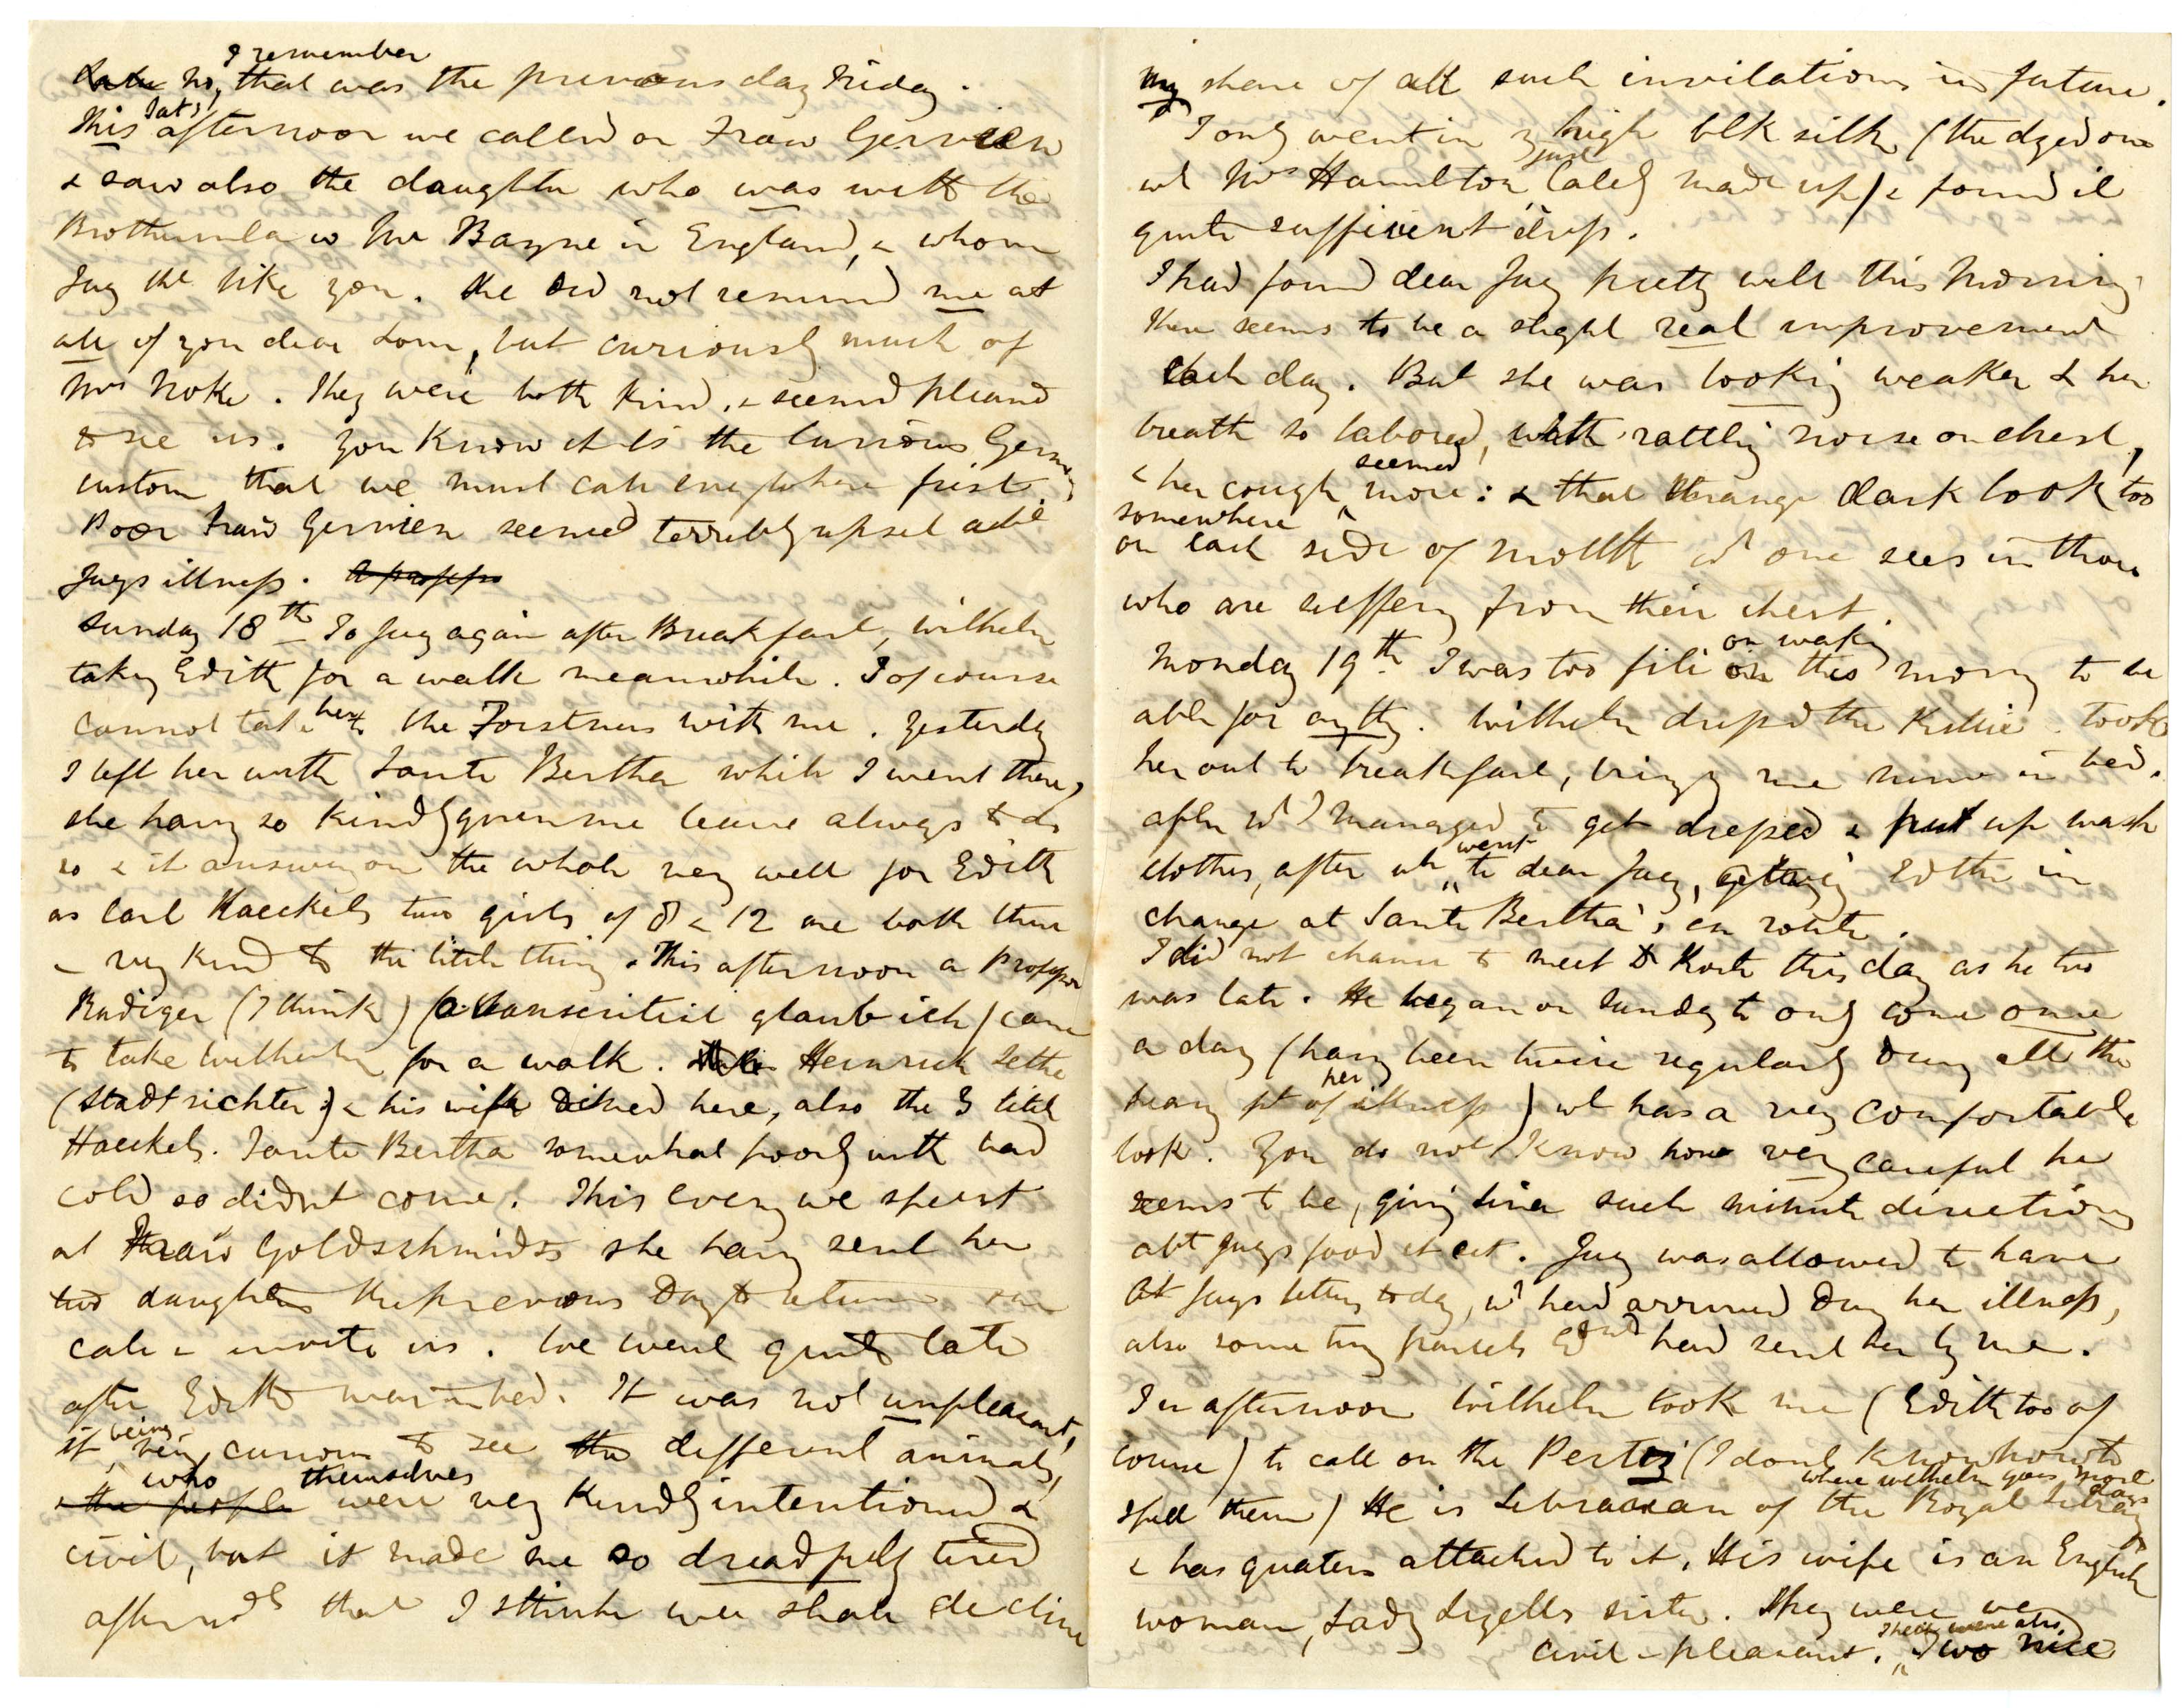 I remember
No, that was the previous day Friday.
This Sat'y afternoon we called on Frau Gerwien
& saw also the daughter who was with the
in England, & whom
Jug tht like you. She did not remind me at
all of you dear Loui, but curiously much of
Mrs Noke. They were both kind, & seemed pleased
to see us. You know it is the curious German
custom that we must call everywhere first.
Poor Frau Gerwien seemed terribly upset abt
Jugs illness. Apropos
Sunday 18th To Jug again after Breakfast, Wilhelm
taking Edith for a walk meanwhile. I of course
cannot take her to the Forstners with me. Yesterday
I left her with Tante Bertha while I went there,
she havg so kindly given me leave always to do
so & it answers on the whole very well for Edith
as Carl Haeckels two girls of 8 & 12 are both there
& very kind to the little thing. This afternoon a Professor
Rudiger (I think) (a Sanscritist glaub ich) came
to take Wilhelm for a walk. Heinrich Sethe
(Stadtrichter) & his wife dined here, also the 3 little
Haeckels. Tante Bertha somewhat poorly with bad
cold so didn't come. This eveng we spent
at Frau Goldschmidts she havg sent her
two daughters the previous day to return our
call & invite us. We went quite late
after Edith was in bed. It was not unpleasant,
it being curious to see the different animals,
& the people who themselves were very kindly intentioned &
civil, but it made me so dreadfully tired
afterwds that I think we shall decline
my share of all such invitations in future.
I only went in my high blk silk (the dyed one
wh Mrs Hamilton just lately made up) & found it
quite sufficient dress.
I had found dear Jug pretty well this Morning
there seems to be a slight real improvement
each day. But she was looking weaker & her
breath so labored, with rattling noise on chest,
& her cough seemed more: & that strange dark look too
somewhere
on each side of mouth wh one sees in those
who are suffering from their chest.
Monday 19th I was too ill on waking this morng to be
able for anythg. Wilhelm dressd the Kiddie took
her out to breakfast, bringg me mine in bed.
after wh I managed to get dressed & put up wash
clothes, after wh went to dear Jug, Edith in
change at Tante Bertha's en route.
I did not chance to meet Dr Korte this day as he too
was late. He began on Sunday to only come once
a day (havg been twice regularly durg all the
heavy pt of her illness) wh has a very comfortable
look. You do not know how very careful he
seems to be, giving Lina such minute directions
abt Jugs food et cet. Jug was allowed to have
At Jugs letters today, wh had arrived durg her illness,
also some tiny parcels Edwd had sent her by me.
In afternoon Wilhelm took me (Edith too of
course) to call on the Pertz (I dont know how to
spell them) He is Librarian of the Royal Library where Wilhelm goes most days
& has quaters attached to it. His wife is an English
woman, Lady Lyells sister. They were very
civil & pleasant. There were also two nice